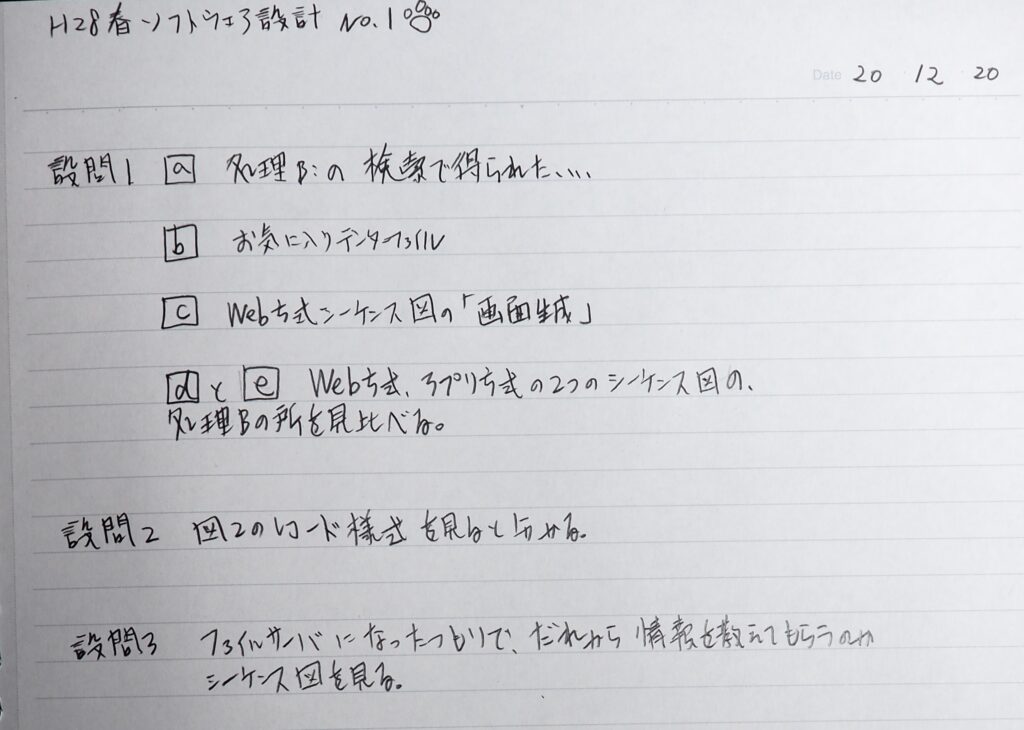 H28春ソフトウェア設計 No.1
Date 20 12 20
設問1 a 処理B:の 検索で得られた、、、
b お気に入りデータファイル
c Web方式シーケンス図の「画面生成」
dとe Web方式、アプリ方式の2つのシーケンス図の、
処理Bの所を見比べる。
設問2 図2のレコード様式を見ると分かる。
設問3 ファイルサーバになったつもりで、だれから情報を教えてもらうのか
シーケンス図を見る。